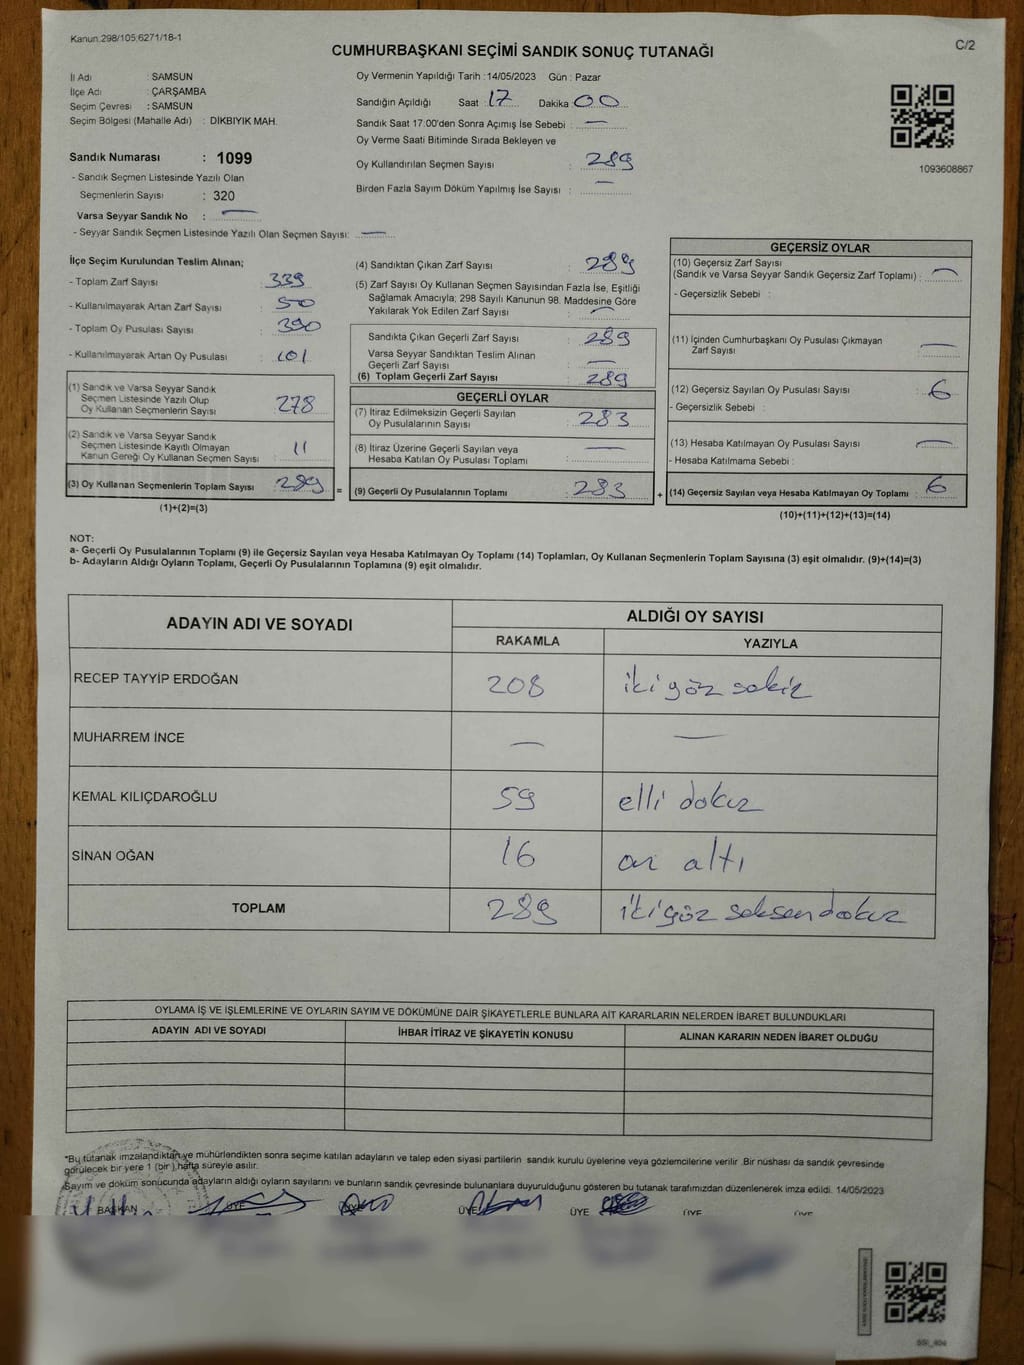 Kanun.298/105;6271/18-1
C/2
CUMHURBAŞKANI SEÇİMİ SANDIK SONUÇ TUTANAĞI
İl Adı : SAMSUN
İlçe Adı : ÇARŞAMBA
Seçim Çevresi : SAMSUN
Seçim Bölgesi (Mahalle Adı) : DİKBIYIK MAH.
Sandık Numarası : 1099
- Sandık Seçmen Listesinde Yazılı Olan
Seçmenlerin Sayısı : 320
Varsa Seyyar Sandık No : —
- Seyyar Sandık Seçmen Listesinde Yazılı Olan Seçmen Sayısı: —
Oy Vermenin Yapıldığı Tarih :14/05/2023 Gün : Pazar
Sandığın Açıldığı Saat : 17 Dakika : 00
Sandık Saat 17:00'den Sonra Açımış İse Sebebi : —
Oy Verme Saati Bitiminde Sırada Bekleyen ve
Oy Kullandırılan Seçmen Sayısı : 289
Birden Fazla Sayım Döküm Yapılmış İse Sayısı : —
1093608867
İlçe Seçim Kurulundan Teslim Alınan;
- Toplam Zarf Sayısı : 339
- Kullanılmayarak Artan Zarf Sayısı : 50
- Toplam Oy Pusulası Sayısı : 390
- Kullanılmayarak Artan Oy Pusulası : 101
(1) Sandık ve Varsa Seyyar Sandık
Seçmen Listesinde Yazılı Olup
Oy Kullanan Seçmenlerin Sayısı : 278
(2) Sandık ve Varsa Seyyar Sandık
Seçmen Listesinde Kayıtlı Olmayan
Kanun Gereği Oy Kullanan Seçmen Sayısı : 11
(3) Oy Kullanan Seçmenlerin Toplam Sayısı : 289 =
(1)+(2)=(3)
(4) Sandıktan Çıkan Zarf Sayısı : 289
(5) Zarf Sayısı Oy Kullanan Seçmen Sayısından Fazla İse, Eşitliği
Sağlamak Amacıyla; 298 Sayılı Kanunun 98. Maddesine Göre
Yakılarak Yok Edilen Zarf Sayısı : —
Sandıkta Çıkan Geçerli Zarf Sayısı : 289
Varsa Seyyar Sandıktan Teslim Alınan
Geçerli Zarf Sayısı : —
(6) Toplam Geçerli Zarf Sayısı : 289
GEÇERLİ OYLAR
(7) İtiraz Edilmeksizin Geçerli Sayılan
Oy Pusulalarının Sayısı : 283
(8) İtiraz Üzerine Geçerli Sayılan veya
Hesaba Katılan Oy Pusulası Toplamı : —
(9) Geçerli Oy Pusulalarının Toplamı : 283 +
GEÇERSİZ OYLAR
(10) Geçersiz Zarf Sayısı
(Sandık ve Varsa Seyyar Sandık Geçersiz Zarf Toplamı) : —
- Geçersizlik Sebebi :
(11) İçinden Cumhurbaşkanı Oy Pusulası Çıkmayan
Zarf Sayısı : —
(12) Geçersiz Sayılan Oy Pusulası Sayısı : 6
- Geçersizlik Sebebi :
(13) Hesaba Katılmayan Oy Pusulası Sayısı : —
- Hesaba Katılmama Sebebi :
(14) Geçersiz Sayılan veya Hesaba Katılmayan Oy Toplamı : 6
(10)+(11)+(12)+(13)=(14)
NOT:
a- Geçerli Oy Pusulalarının Toplamı (9) ile Geçersiz Sayılan veya Hesaba Katılmayan Oy Toplamı (14) Toplamları, Oy Kullanan Seçmenlerin Toplam Sayısına (3) eşit olmalıdır. (9)+(14)=(3)
b- Adayların Aldığı Oyların Toplamı, Geçerli Oy Pusulalarının Toplamına (9) eşit olmalıdır.
ADAYIN ADI VE SOYADI
ALDIĞI OY SAYISI
RAKAMLA YAZIYLA
RECEP TAYYİP ERDOĞAN 208 iki yöz sekiz
MUHARREM İNCE — —
KEMAL KILIÇDAROĞLU 59 elli dokuz
SİNAN OĞAN 16 on altı
TOPLAM 289 iki yöz seksen dokuz
OYLAMA İŞ VE İŞLEMLERİNE VE OYLARIN SAYIM VE DÖKÜMÜNE DAİR ŞİKAYETLERLE BUNLARA AİT KARARLARIN NELERDEN İBARET BULUNDUKLARI
ADAYIN ADI VE SOYADI İHBAR İTİRAZ VE ŞİKAYETİN KONUSU ALINAN KARARIN NEDEN İBARET OLDUĞU
*Bu tutanak imzalandıktan ve mühürlendikten sonra seçime katılan adayların ve talep eden siyasi partilerin sandık kurulu üyelerine veya gözlemcilerine verilir .Bir nüshası da sandık çevresinde
görülecek bir yere 1 (bir ) hafta süreyle asılır.
Sayım ve döküm sonucunda adayların aldığı oyların sayılarını ve bunların sandık çevresinde bulunanlara duyurulduğunu gösteren bu tutanak tarafımızdan düzenlenerek imza edildi. 14/05/2023
BAŞKAN ÜYE ÜYE ÜYE ÜYE ÜYE ÜYE